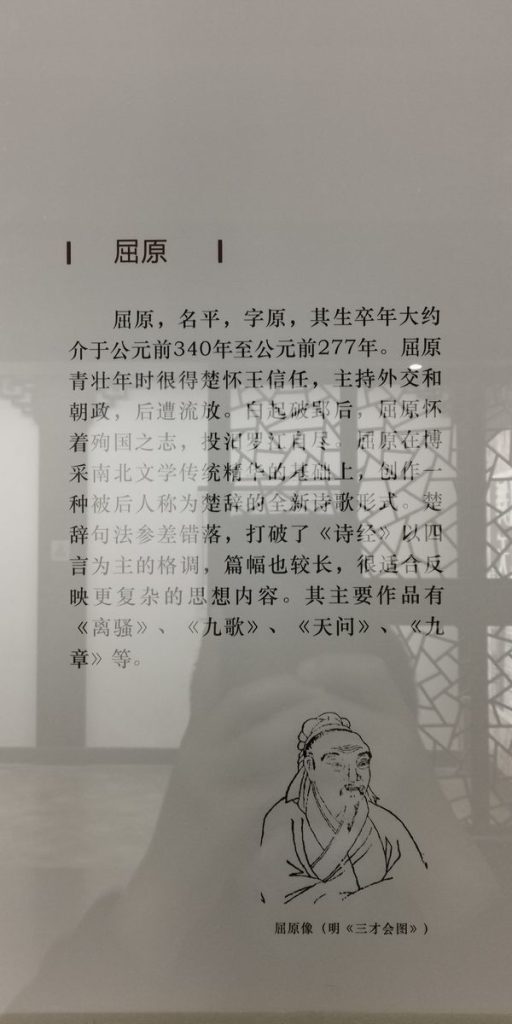 屈原
屈原，名平，字原，其生卒年大约
介于公元前340年至公元前277年。屈原
青壮年时很得楚怀王信任，主持外交和
朝政，后遭流放。白起破郢后，屈原怀
着殉国之志，投汨罗江自尽。屈原在博
采南北文学传统精华的基础上，创作一
种被后人称为楚辞的全新诗歌形式。楚
辞句法参差错落，打破了《诗经》以四
言为主的格调，篇幅也较长，很适合反
映更复杂的思想内容。其主要作品有
《离骚》、《九歌》、《天问》、《九
章》等。
屈原像（明《三才会图》）